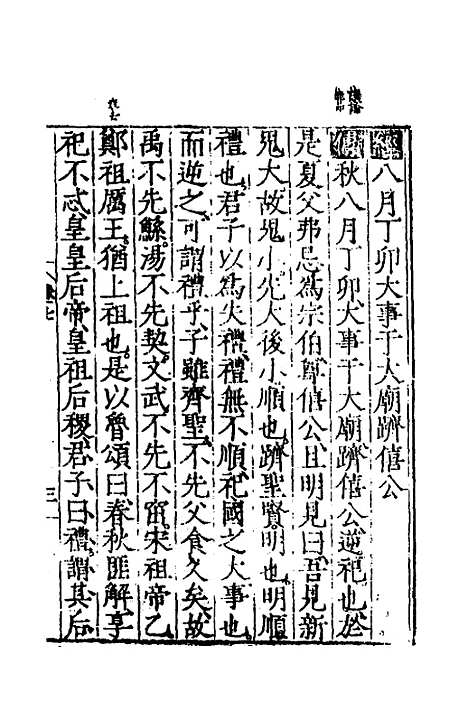 經八月丁卯大事于大廟躋僖公
傳秋八月丁卯大事于大廟躋僖公逆祀也於
是夏父弗忌爲宗伯尊僖公且明見曰吾見新
鬼大故鬼小先大後小順也躋聖賢明也明順
禮也君子以爲失禮禮無不順祀國之大事也
而逆之可謂禮乎子雖齊聖不先父食久矣故
禹不先鯀湯不先契文武不先不窋宋祖帝乙
鄭祖厲王猶上祖也是以魯頌曰春秋匪解享
祀不忒皇皇后帝皇祖后稷君子曰禮謂其后